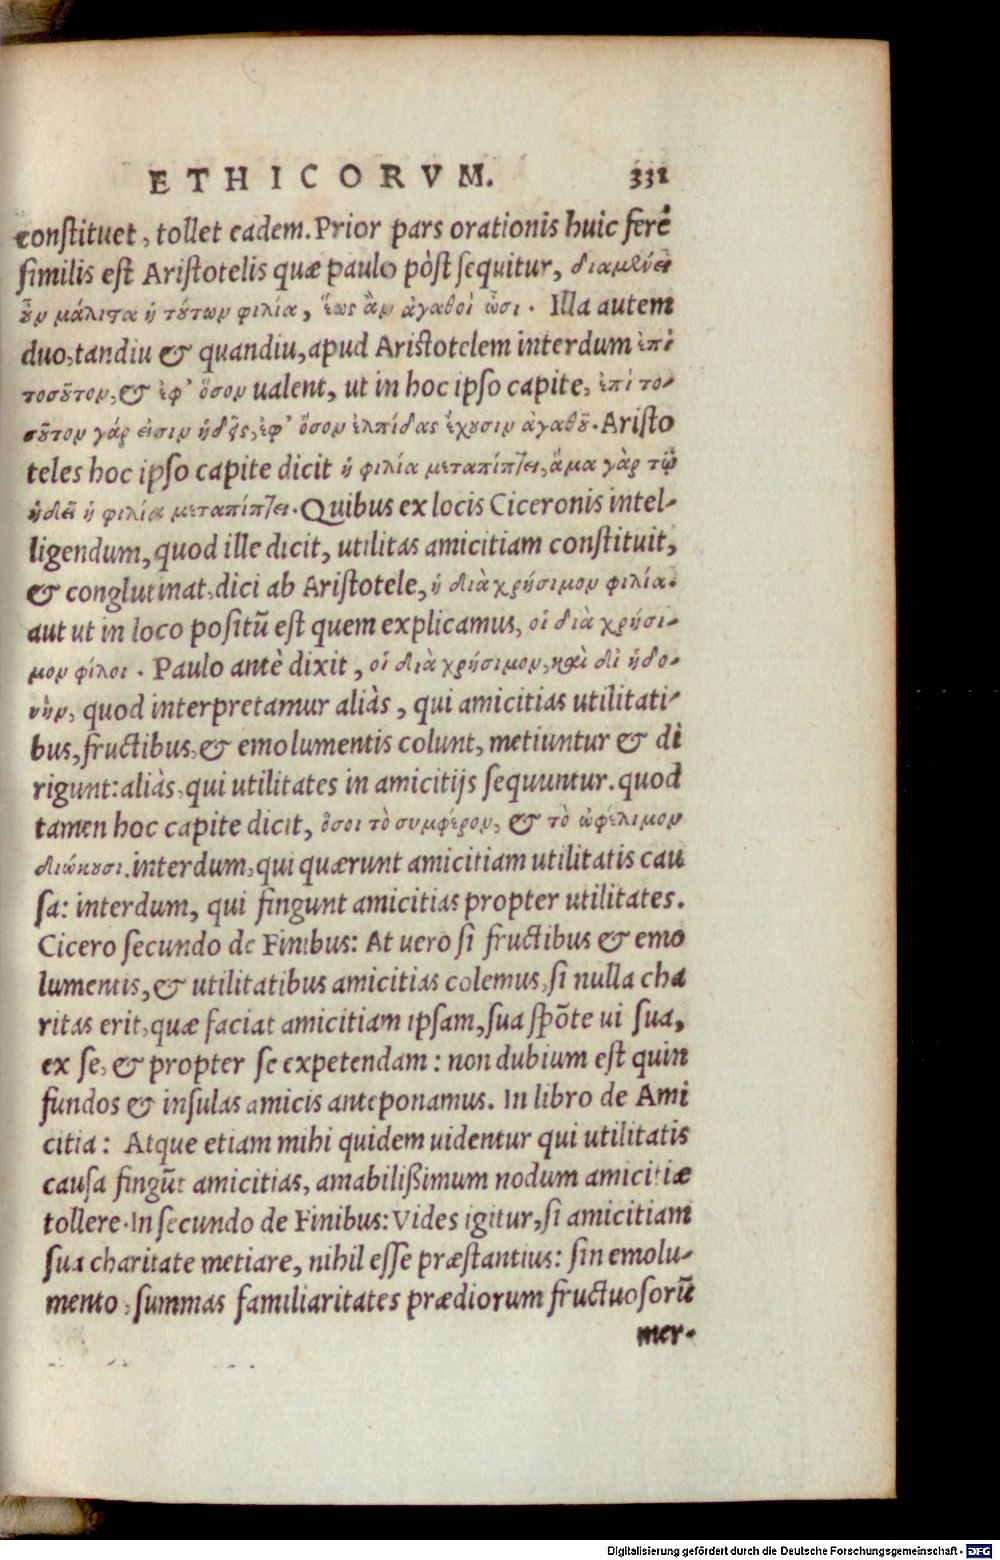 ETHICORVM. 331
constituet, tollet eadem. Prior pars orationis huic ferè
similis est Aristotelis quæ paulo pòst sequitur, διαμένει
οὖν μάλιστα ἡ τούτων φιλία, ἕως ἂν ἀγαθοὶ ὦσι. Illa autem
duo, tandiu & quandiu, apud Aristotelem interdum ἐπὶ
τοσοῦτον, & ἐφ' ὅσον ualent, ut in hoc ipso capite, ἐπὶ το-
σοῦτον γάρ εἰσιν ἡδεῖς, ἐφ' ὅσον ἐλπίδας ἔχουσιν ἀγαθοῦ. Aristo
teles hoc ipso capite dicit ἡ φιλία μεταπίπτει, ἅμα γὰρ τῷ
ἡδεῖ ἡ φιλία μεταπίπτει. Quibus ex locis Ciceronis intel-
ligendum, quod ille dicit, utilitas amicitiam constituit,
& conglutinat, dici ab Aristotele, ἡ διὰ χρήσιμον φιλία.
aut ut in loco positū est quem explicamus, οἱ διὰ χρήσι-
μον φίλοι. Paulo antè dixit, οἱ διὰ χρήσιμον, καὶ δι' ἡδο-
νὴν, quod interpretamur aliàs, qui amicitias utilitati-
bus, fructibus, & emolumentis colunt, metiuntur & di
rigunt: aliàs, qui utilitates in amicitijs sequuntur. quod
tamen hoc capite dicit, ὅσοι τὸ συμφέρον, & τὸ ὠφέλιμον
διώκουσι. interdum, qui quærunt amicitiam utilitatis cau
sa: interdum, qui fingunt amicitias propter utilitates.
Cicero secundo de Finibus: At uero si fructibus & emo
lumentis, & utilitatibus amicitias colemus, si nulla cha
ritas erit, quæ faciat amicitiam ipsam, sua spōte ui sua,
ex se, & propter se expetendam: non dubium est quin
fundos & insulas amicis anteponamus. In libro de Ami
citia: Atque etiam mihi quidem uidentur qui utilitatis
causa fingūt amicitias, amabilißimum nodum amicitiæ
tollere. In secundo de Finibus: Vides igitur, si amicitiam
sua charitate metiare, nihil esse præstantius: sin emolu-
mento, summas familiaritates prædiorum fructuosorū
mer-
Digitalisierung gefördert durch die Deutsche Forschungsgemeinschaft - DFG